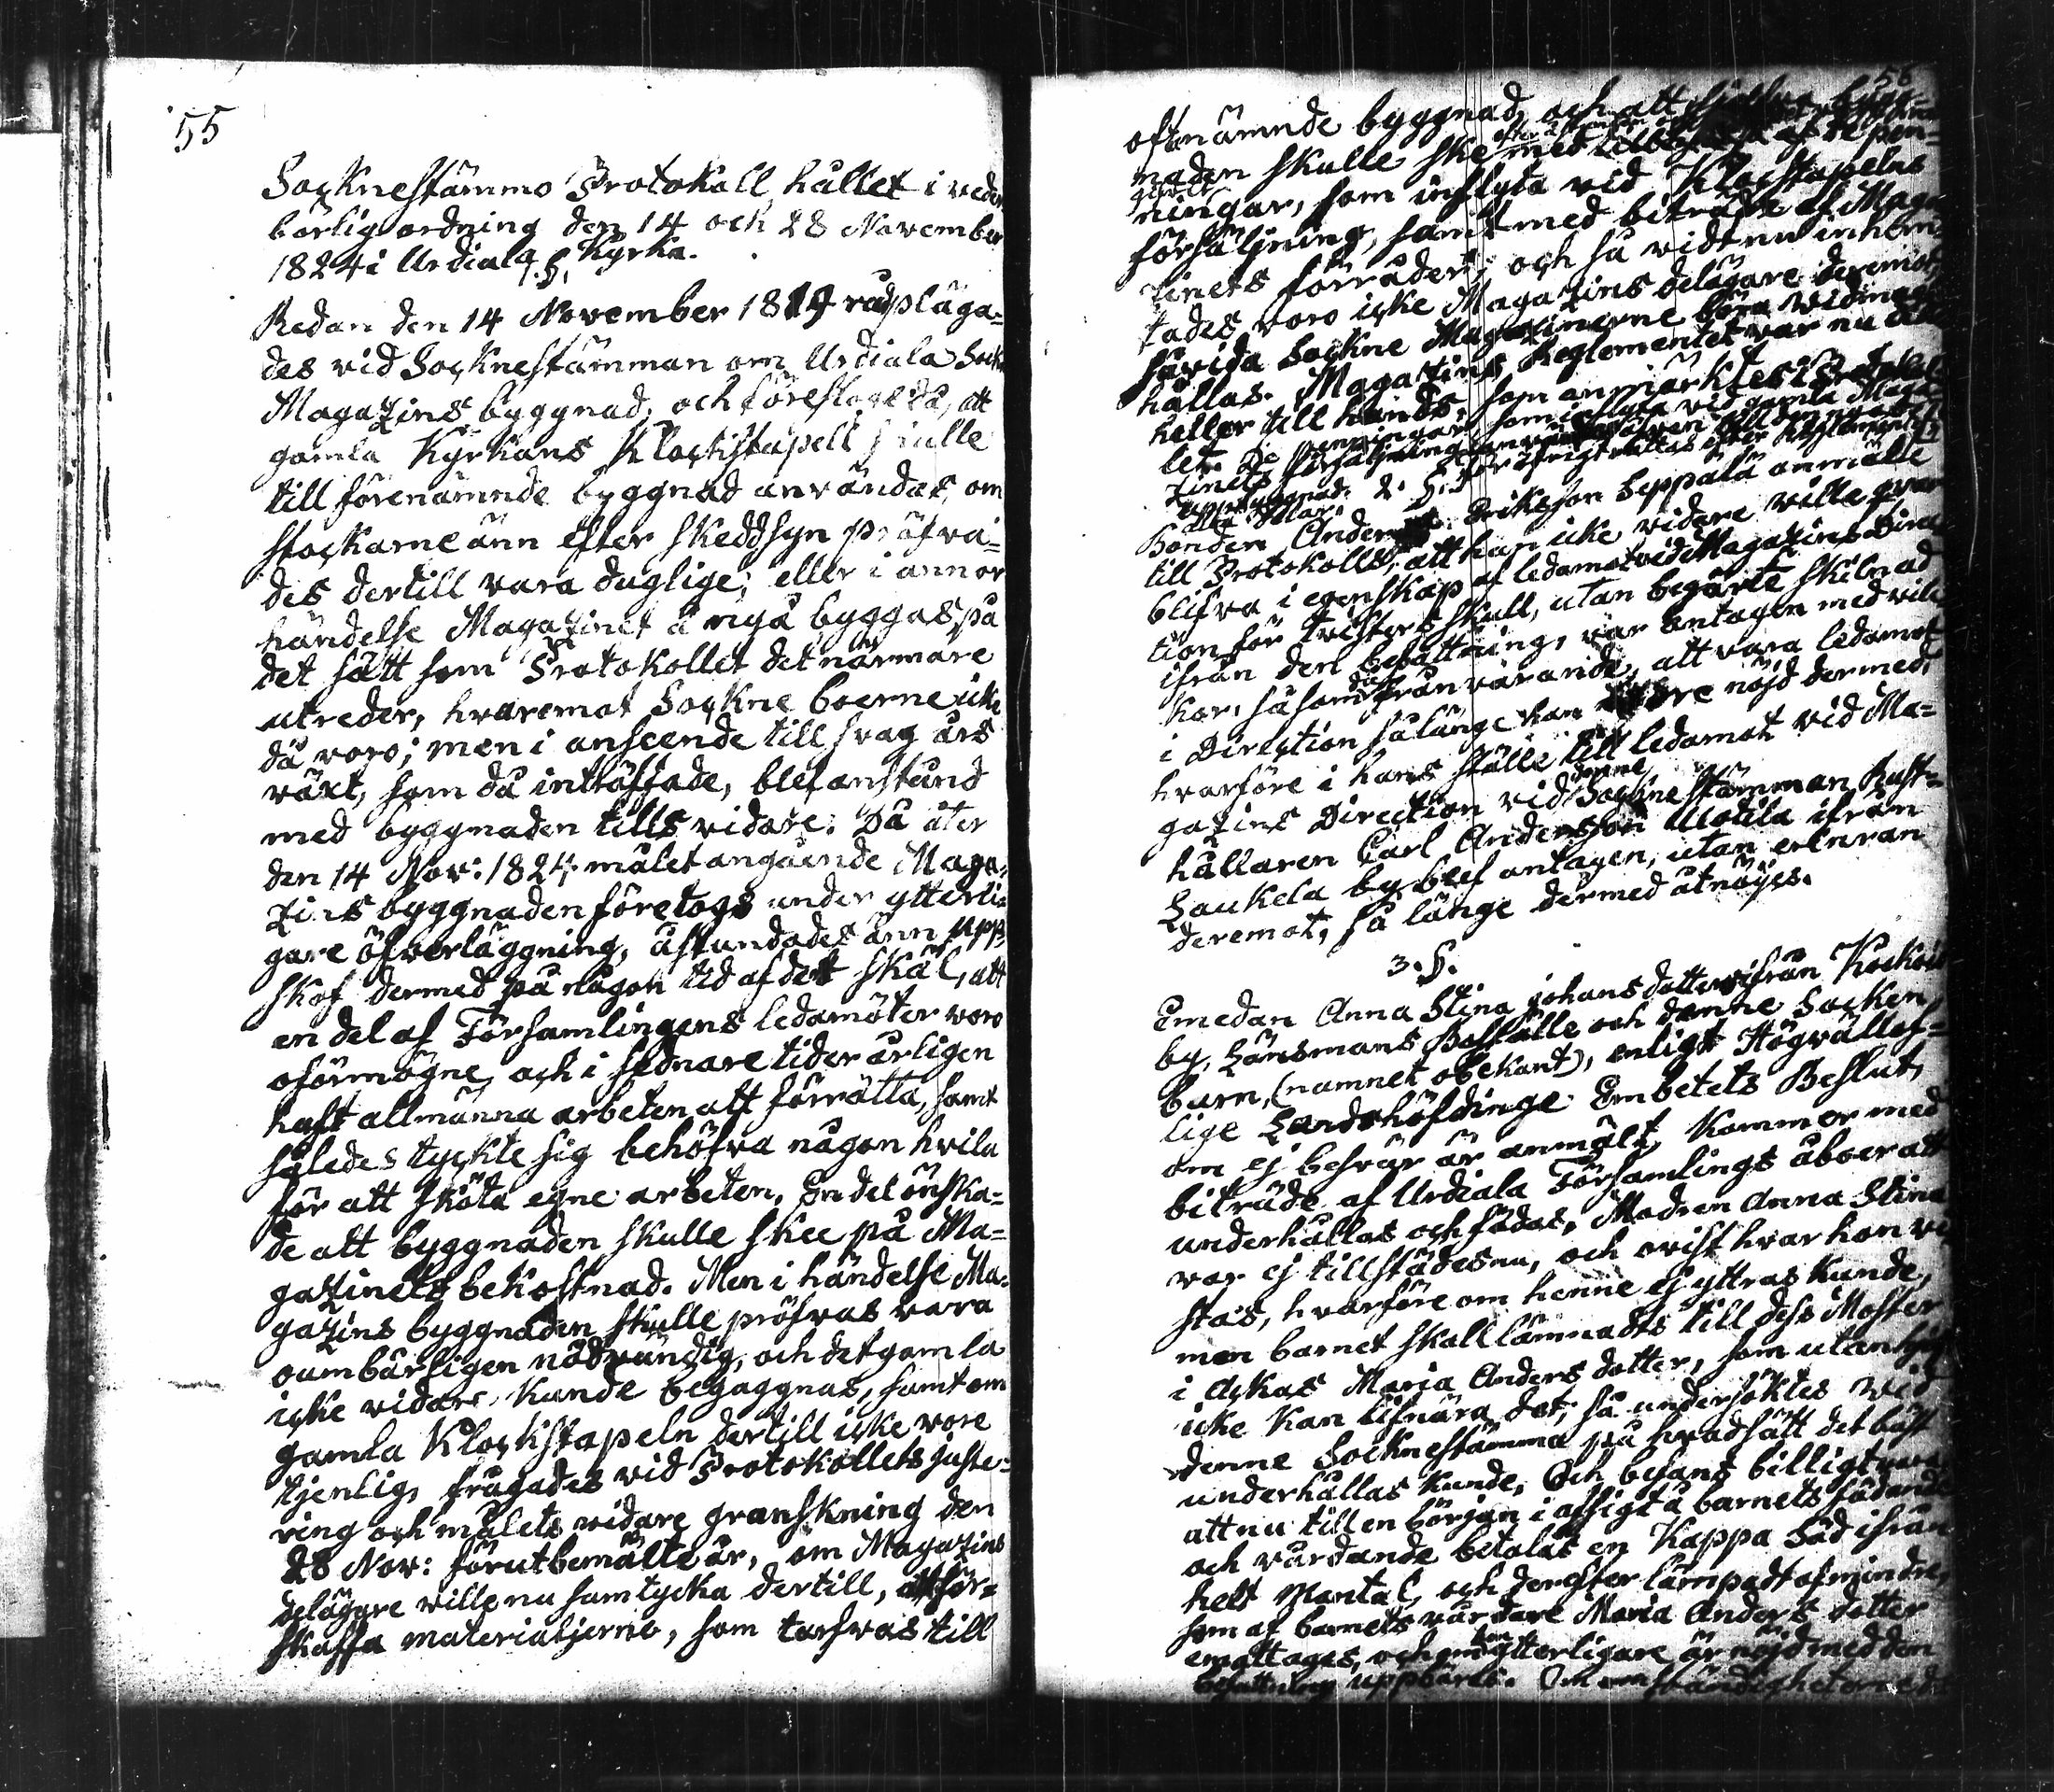 55
Socknestämmo Protokoll, hållet i veder
börlig ordning den 14 och 28 November
1824 i Urdiala Kyrka.
1. §.
Redan den 14 November 1819 rådpläga=
des vid Socknestämman om Urdiala Sock
Magazins byggnad, och föreslogs då, att
gamla Kyrkans Klockstapell skulle
till förenämnde byggnad användas, om
stockarne änn efter skedd syn pröfva=
des dertill vara duglige; eller i annor
händelse Magazinet å nyå byggas på
det sätt som Protokollet det närmare
utreder, hvaremot Sockne boerne icke
då voro; men i anseende till svag års
växt, som då inträffade, blef anstånd
med byggnaden tills vidare. Då åter
den 14 Nov: 1824 målet angående Maga=
zins byggnaden företogs under ytterli
gare öfverläggning, åstundades änn upp
skof dermed på någon tid af det skäl, att
en del af Församlingens ledamöter voro
oförmögne, och i sednare tider årligen
haft allmänna arbeten att förrätta, samt
således tyckte sig behöfva någon hvila
för att sköta egne arbeten. En del önska=
de att byggnaden skulle skee på Ma=
gazinets bekostnad. Men i händelse Ma=
gazins byggnaden skulle pröfvas vara
oumbärligen nödvändig, och det gamla
icke vidare kunde begaggnas, samt om
gamla Klockstapeln dertill icke vore
tjenlig, frågades vid Protokollets juste=
ring och målets vidare granskning den
28 Nov: förutbemälte år, om Magazins
delägare ville nu samtycka dertill, att för=
skaffa materialjerne, som tarfvas till
56
oftanämnde byggnad, och att sjelfva bygg=
naden skulle ske med af de pen=
ningar, som inflyta vid Klockstapelns
försäljning, samt med biträde af Maga
zinets förråder; och så vidt nu inhem
tades, voro icke Magazins delägare deremot,
såvida Sockne Magazinerne böra vidmagt
hållas. Magazins Reglementet var nu icke
heller till hands, som anmärktes i Protokol
let. De penningar som inflyta vid gamla Maga
zinets försäljning användas äfven till den nya
uppbyggnad. för öfrigt rättas efter Reglementet
2. §.
Bonden Anders Eriksson Seppälä anmälte
till Protokolls, att han icke vidare ville qvar
blifva i egenskap af ledamot vid Magazins Direc
tion för tvisters skull, utan begärte skilnad
ifrån den befattning, var antagen med vil
kor, såsom då frånvarande, att vara ledamot
i Direction så länge han vore nöjd dermed,
hvarföre i hans ställe till ledamot vid Ma=
gazins Direction vid denne Socknestämman Rust=
hållaren Carl Andersson Uotila ifrån
Laukela by blef antagen, utan erinran
deremot, så länge dermed åtnöjes.
3. §.
Emedan Anna Stina Johansdotters ifrån
by, Länsmans Boställe och denne Socken,
barn, (namnet obekant), enligt Högvällof=
lige Landshöfdinge Embetets Beslut,
om ej besvär är anmält, kommer med
biträde af Urdiala Församlings åboer att
underhållas och födas. Modren Anna Stina
var ej tillstädes nu, och ovist hvar hon vi
stas, hvarföre om henne ej yttras kunde,
men barnet skall lämnadts till dess Moster
i Ackas Maria Anders dotter, som utan
icke kan lifnära det; så undersöktes vid
denne Socknestämma på hvad sätt det bäst
underhållas kunde. Och befans billigt vara
att nu till en början i afsigt å barnets födande
och vårdande betalas en Kappa Säd ifrån
helt Mantal, och derefter lämpadt af mindre,
som af barnets vårdare Maria Anders dotter
emottages, och om hon ytterligare är nöjd med den
befattning uppbäres. Om omständigheterne